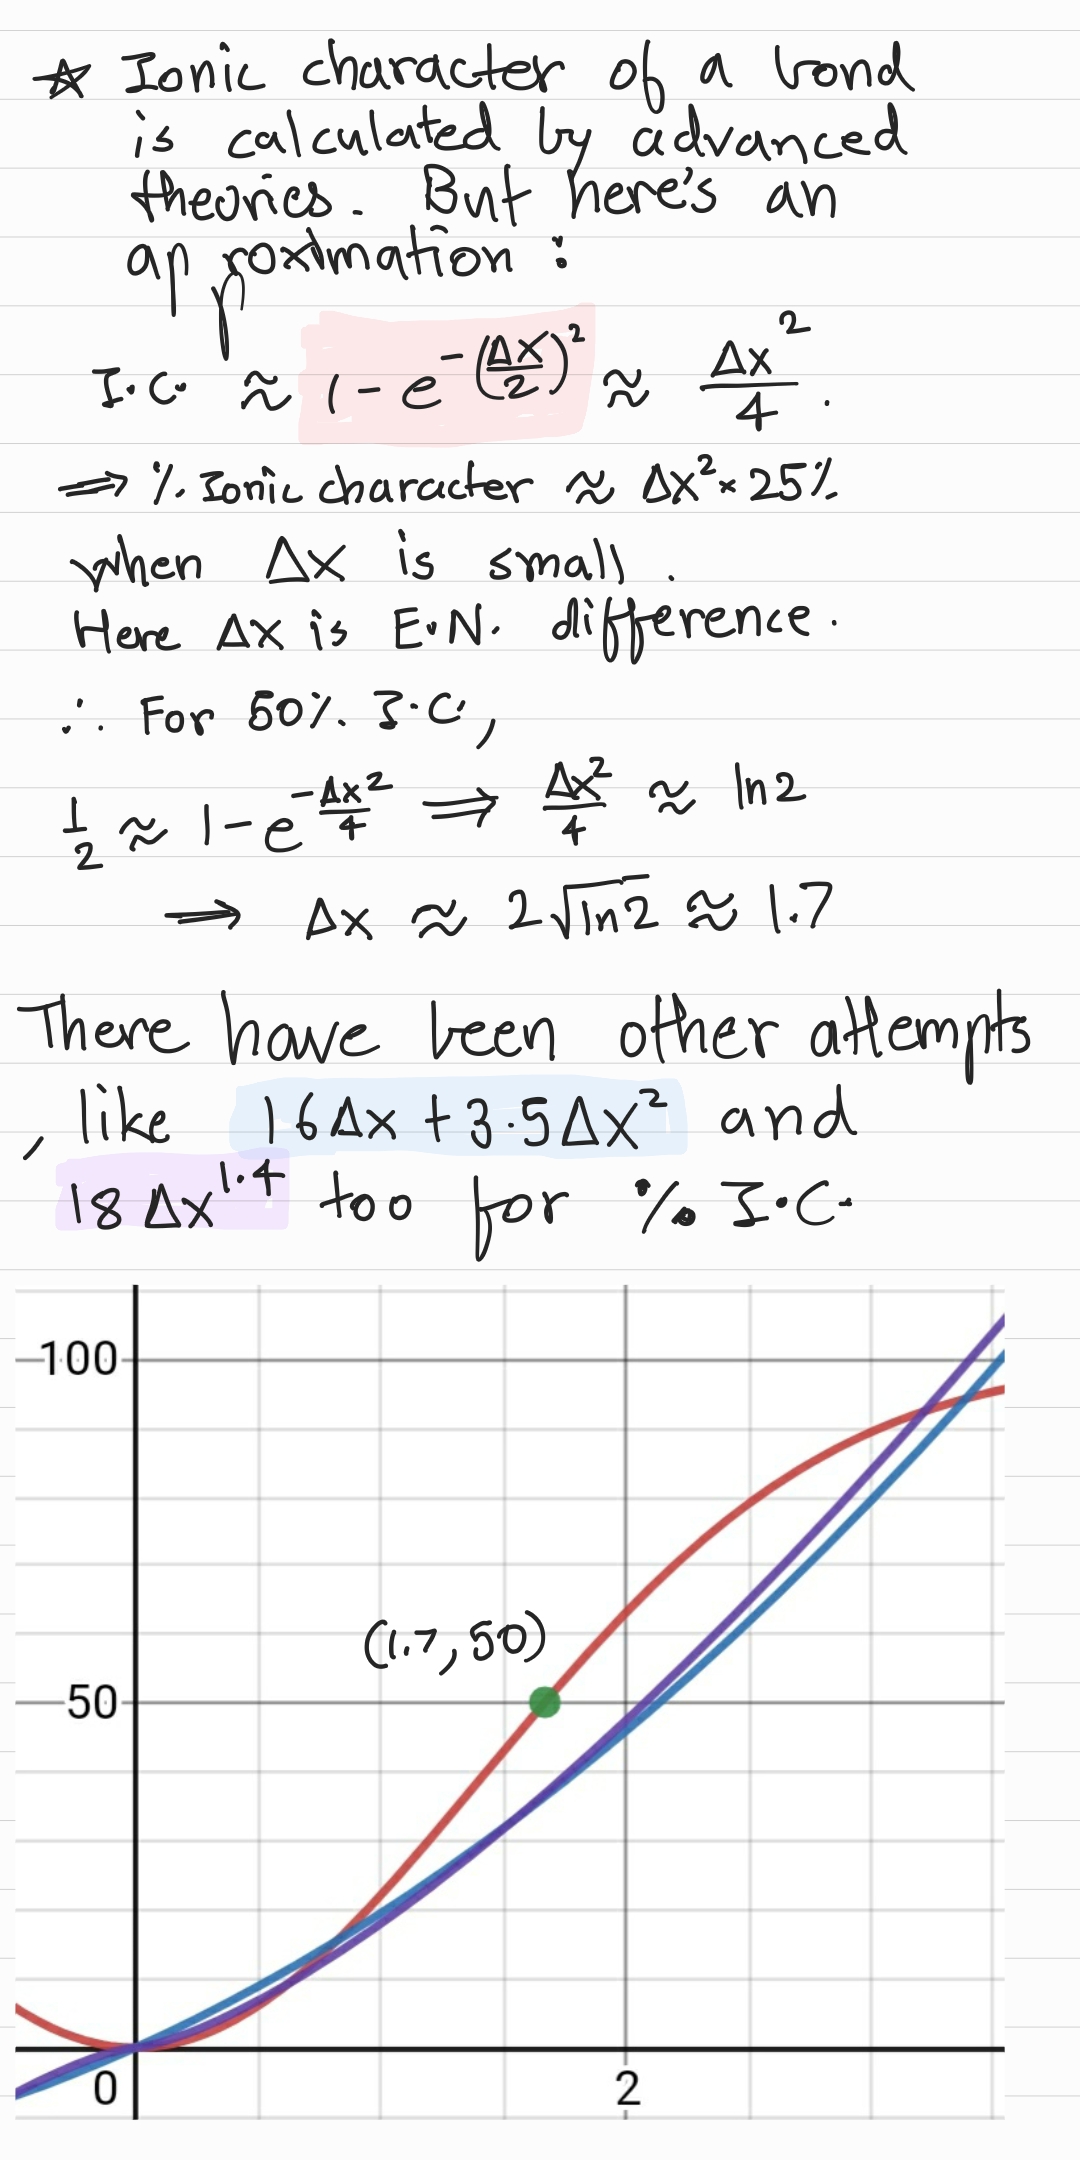 ☆ Ionic character of a bond
is calculated by advanced
theories. But here's an
approximation :
I.C. ≈ 1 - e^{-(Δx/2)^2} ≈ Δx^2/4 .
⇒ % Ionic character ≈ Δx^2 × 25%
when Δx is small .
Here Δx is E.N. difference .
∴ For 50% I.C,
1/2 ≈ 1 - e^{-Δx^2/4} ⇒ Δx^2/4 ≈ ln2
⇒ Δx ≈ 2√ln2 ≈ 1.7
There have been other attempts
, like 16Δx + 3.5Δx^2 and
18Δx^{1.4} too for % I.C.
100
(1.7, 50)
50
0 2